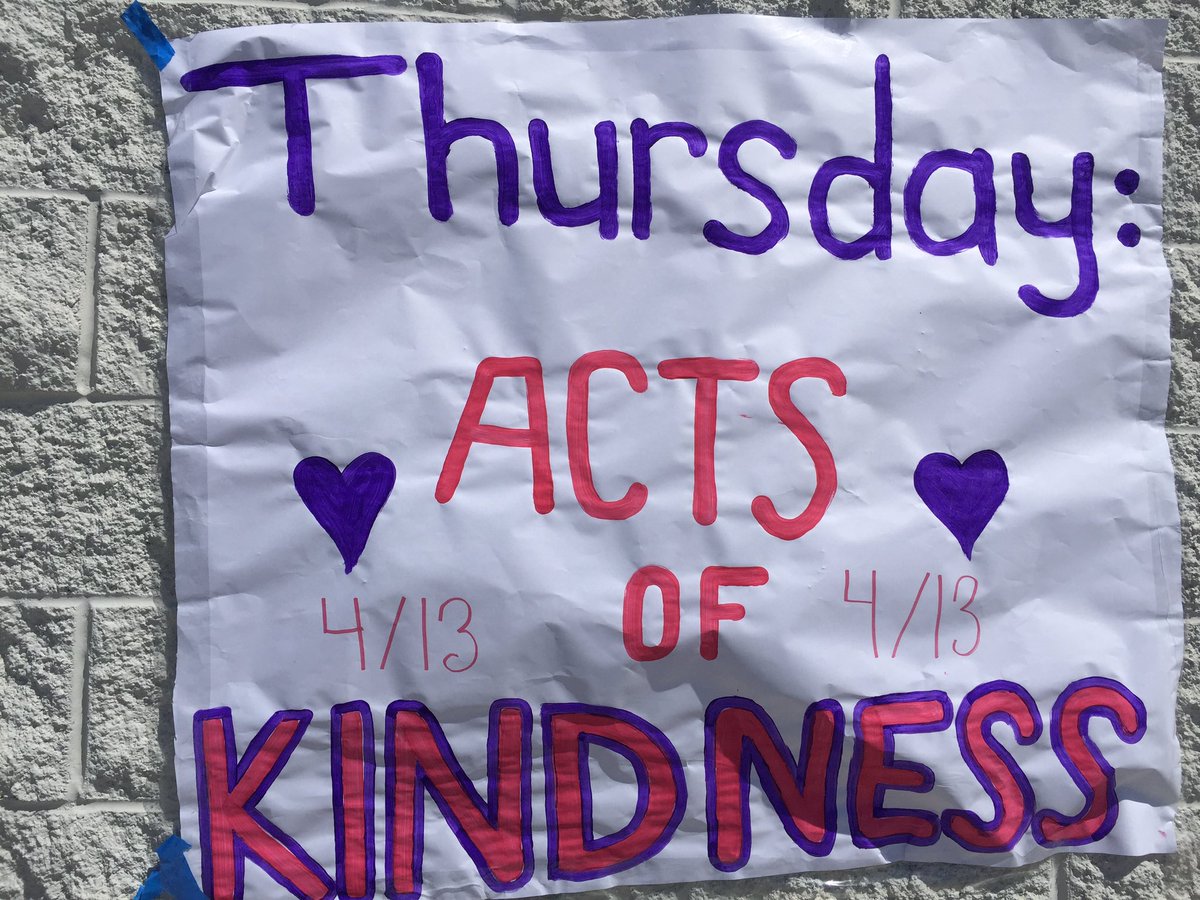 Thursday:
ACTS
4/13 OF 4/13
KINDNESS